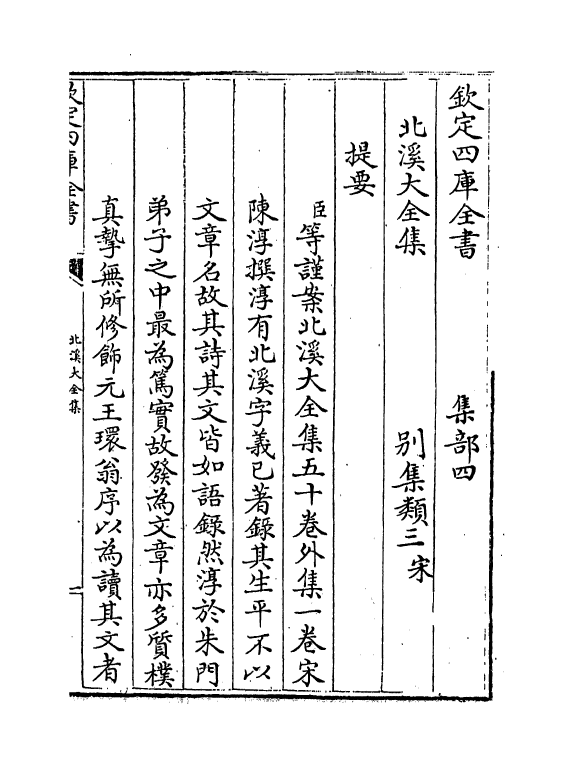 欽定四庫全書　集部四
北溪大全集　別集類三宋
提要
臣等謹案北溪大全集五十卷外集一卷宋
陳淳撰淳有北溪字義已著錄其生平不以
文章名故其詩其文皆如語錄然淳於朱門
弟子之中最為篤實故發為文章亦多質樸
真摯無所修飾元王環翁序以為讀其文者
欽定四庫全書
北溪大全集